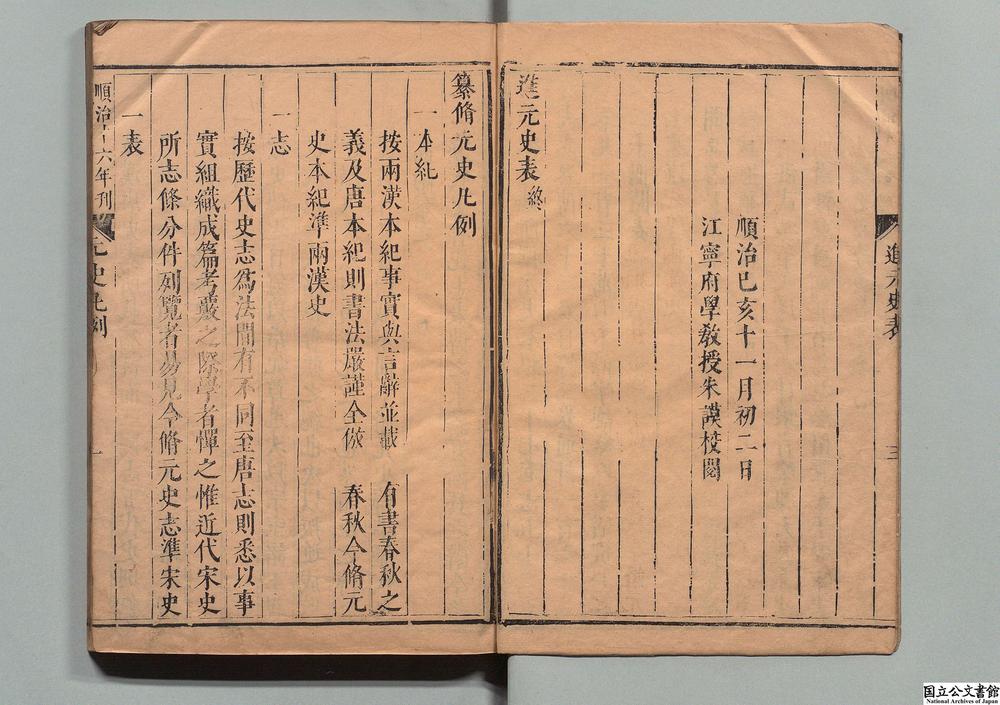 進元史表
三
順治己亥十一月初二日
江寧府學教授朱謨校閱
進元史表終
纂脩元史凡例
一本紀
按兩漢本紀事實與言辭並載 有書春秋之
義及唐本紀則書法嚴謹全倣 春秋今脩元
史本紀準兩漢史
一志
按歷代史志為法間有不同至唐志則悉以事
實組織成篇考覈之際學者憚之惟近代宋史
所志條分件列覽者易見今脩元史志準宋史
一表
順治十六年刊
元史凡例
一
国立公文書館
National Archives of Japan